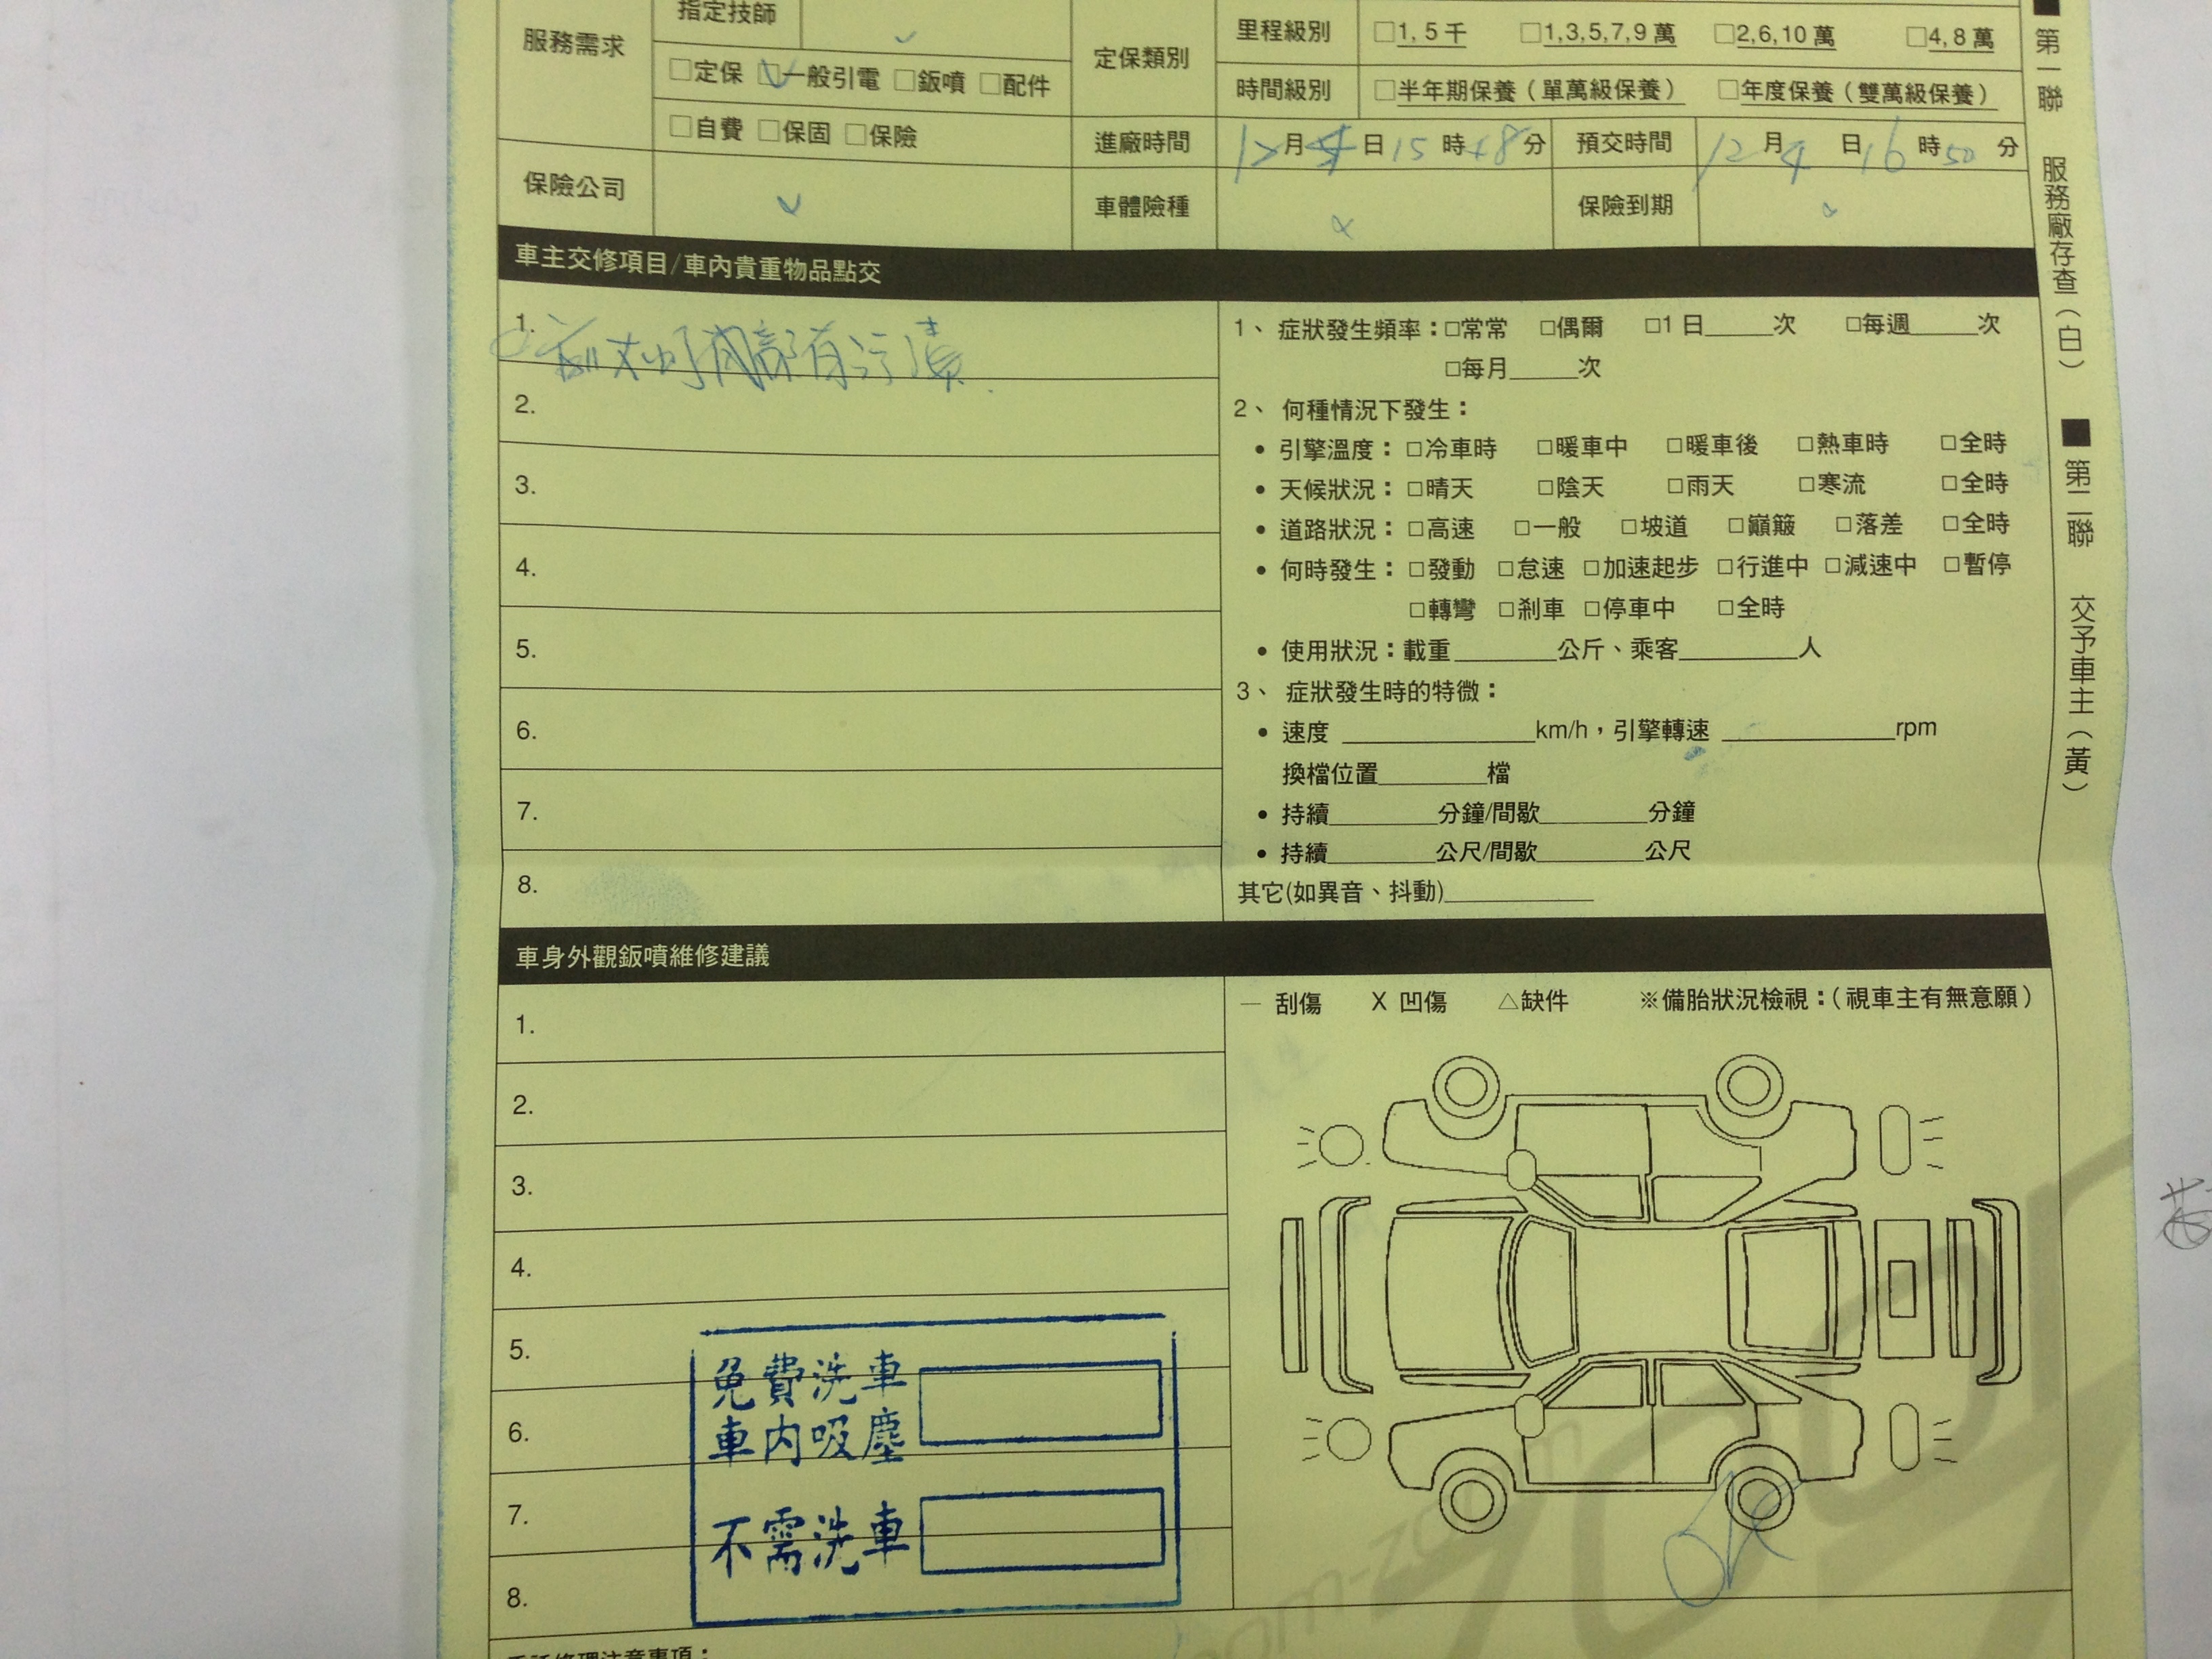 服務需求 指定技師
□定保 □一般引電 □鈑噴 □配件
□自費 □保固 □保險
定保類別 里程級別 □1, 5千 □1,3,5,7,9萬 □2,6,10萬 □4, 8萬
時間級別 □半年期保養（單萬級保養） □年度保養（雙萬級保養）
進廠時間 12月4日15時48分 預交時間 12月4日16時50分
保險公司 車體險種 保險到期
車主交修項目/車內貴重物品點交
1. 內部有污漬
2.
3.
4.
5.
6.
7.
8.
1、症狀發生頻率：□常常 □偶爾 □1日_____次 □每週_____次
□每月_____次
2、何種情況下發生：
• 引擎溫度：□冷車時 □暖車中 □暖車後 □熱車時 □全時
• 天候狀況：□晴天 □陰天 □雨天 □寒流 □全時
• 道路狀況：□高速 □一般 □坡道 □巔簸 □落差 □全時
• 何時發生：□發動 □怠速 □加速起步 □行進中 □減速中 □暫停
□轉彎 □剎車 □停車中 □全時
• 使用狀況：載重________公斤、乘客_________人
3、症狀發生時的特微：
• 速度 ______________km/h，引擎轉速 _____________rpm
換檔位置________檔
• 持續________分鐘/間歇________分鐘
• 持續________公尺/間歇________公尺
其它(如異音、抖動)___________
車身外觀鈑噴維修建議
1.
2.
3.
4.
5.
6.
7.
8.
— 刮傷 X 凹傷 △缺件 ※備胎狀況檢視：（視車主有無意願）
免費洗車
車內吸塵
不需洗車
OK
■第一聯 服務廠存查（白） ■第二聯 交予車主（黃）